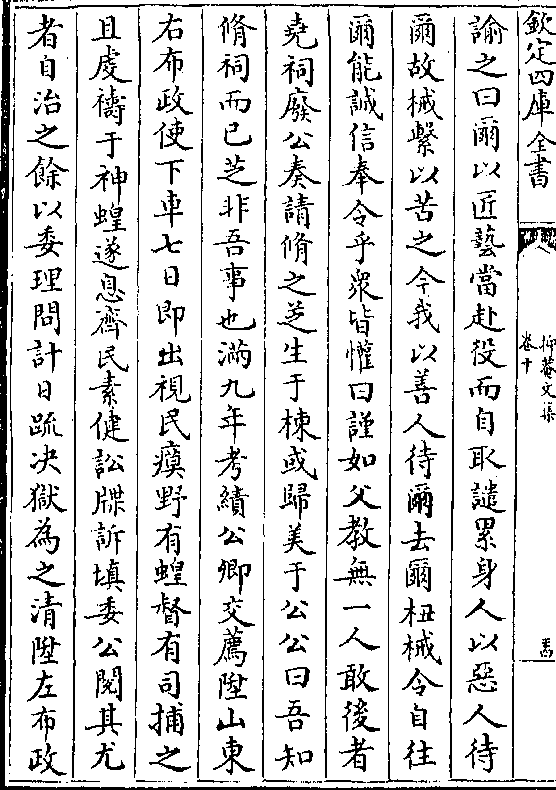 欽定四庫全書
抑菴文集
卷十
諭之曰爾以匠藝當赴役而自取譴累身人以惡人待
爾故械繫以苦之今我以善人待爾去爾杻械令自往
爾能誠信奉令乎衆皆懽曰謹如父教無一人敢後者
堯祠廢公奏請脩之芝生于棟或歸美于公公曰吾知
脩祠而已芝非吾事也滿九年考績公卿交薦陞山東
右布政使下車七日即出視民瘼野有蝗督有司捕之
且䖍禱于神蝗遂息齊民素健訟牒訴填委公閱其尤
者自治之餘以委理問計日疏决獄為之清陞左布政